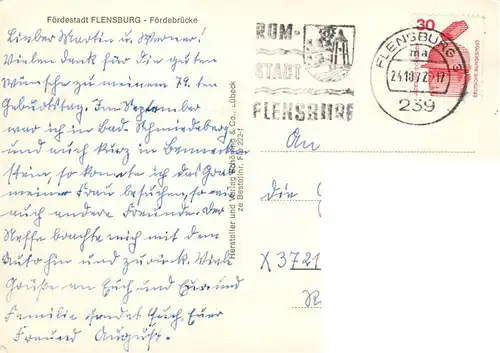 Fördestadt FLENSBURG - Fördebrücke
Lieber Martin u. Werner!
Vielen Dank für die guten
Wünsche zu meinem 79. ten
Geburtstag. Im September
war ich in Bad Schmiedeberg
und auch kurz in
stein, so konnte ich das Grab
meiner Frau besuchen, so wie
auch andere Freunde. Der
Neffe brachte mich mit dem
Auto hin und zurück. Viele
Grüße an Euch und Eure
Familie sendet Euch Euer
Freund August.
Hersteller und Verlag Schöning & Co., Lübeck
ze Bestellnr. Fla 223-f
RUM-
STADT
FLENSBURG
FLENSBURG 3
ma
24.10.72-17
239
30
DEUTSCHE BUNDESPOST
An
die
X 3721